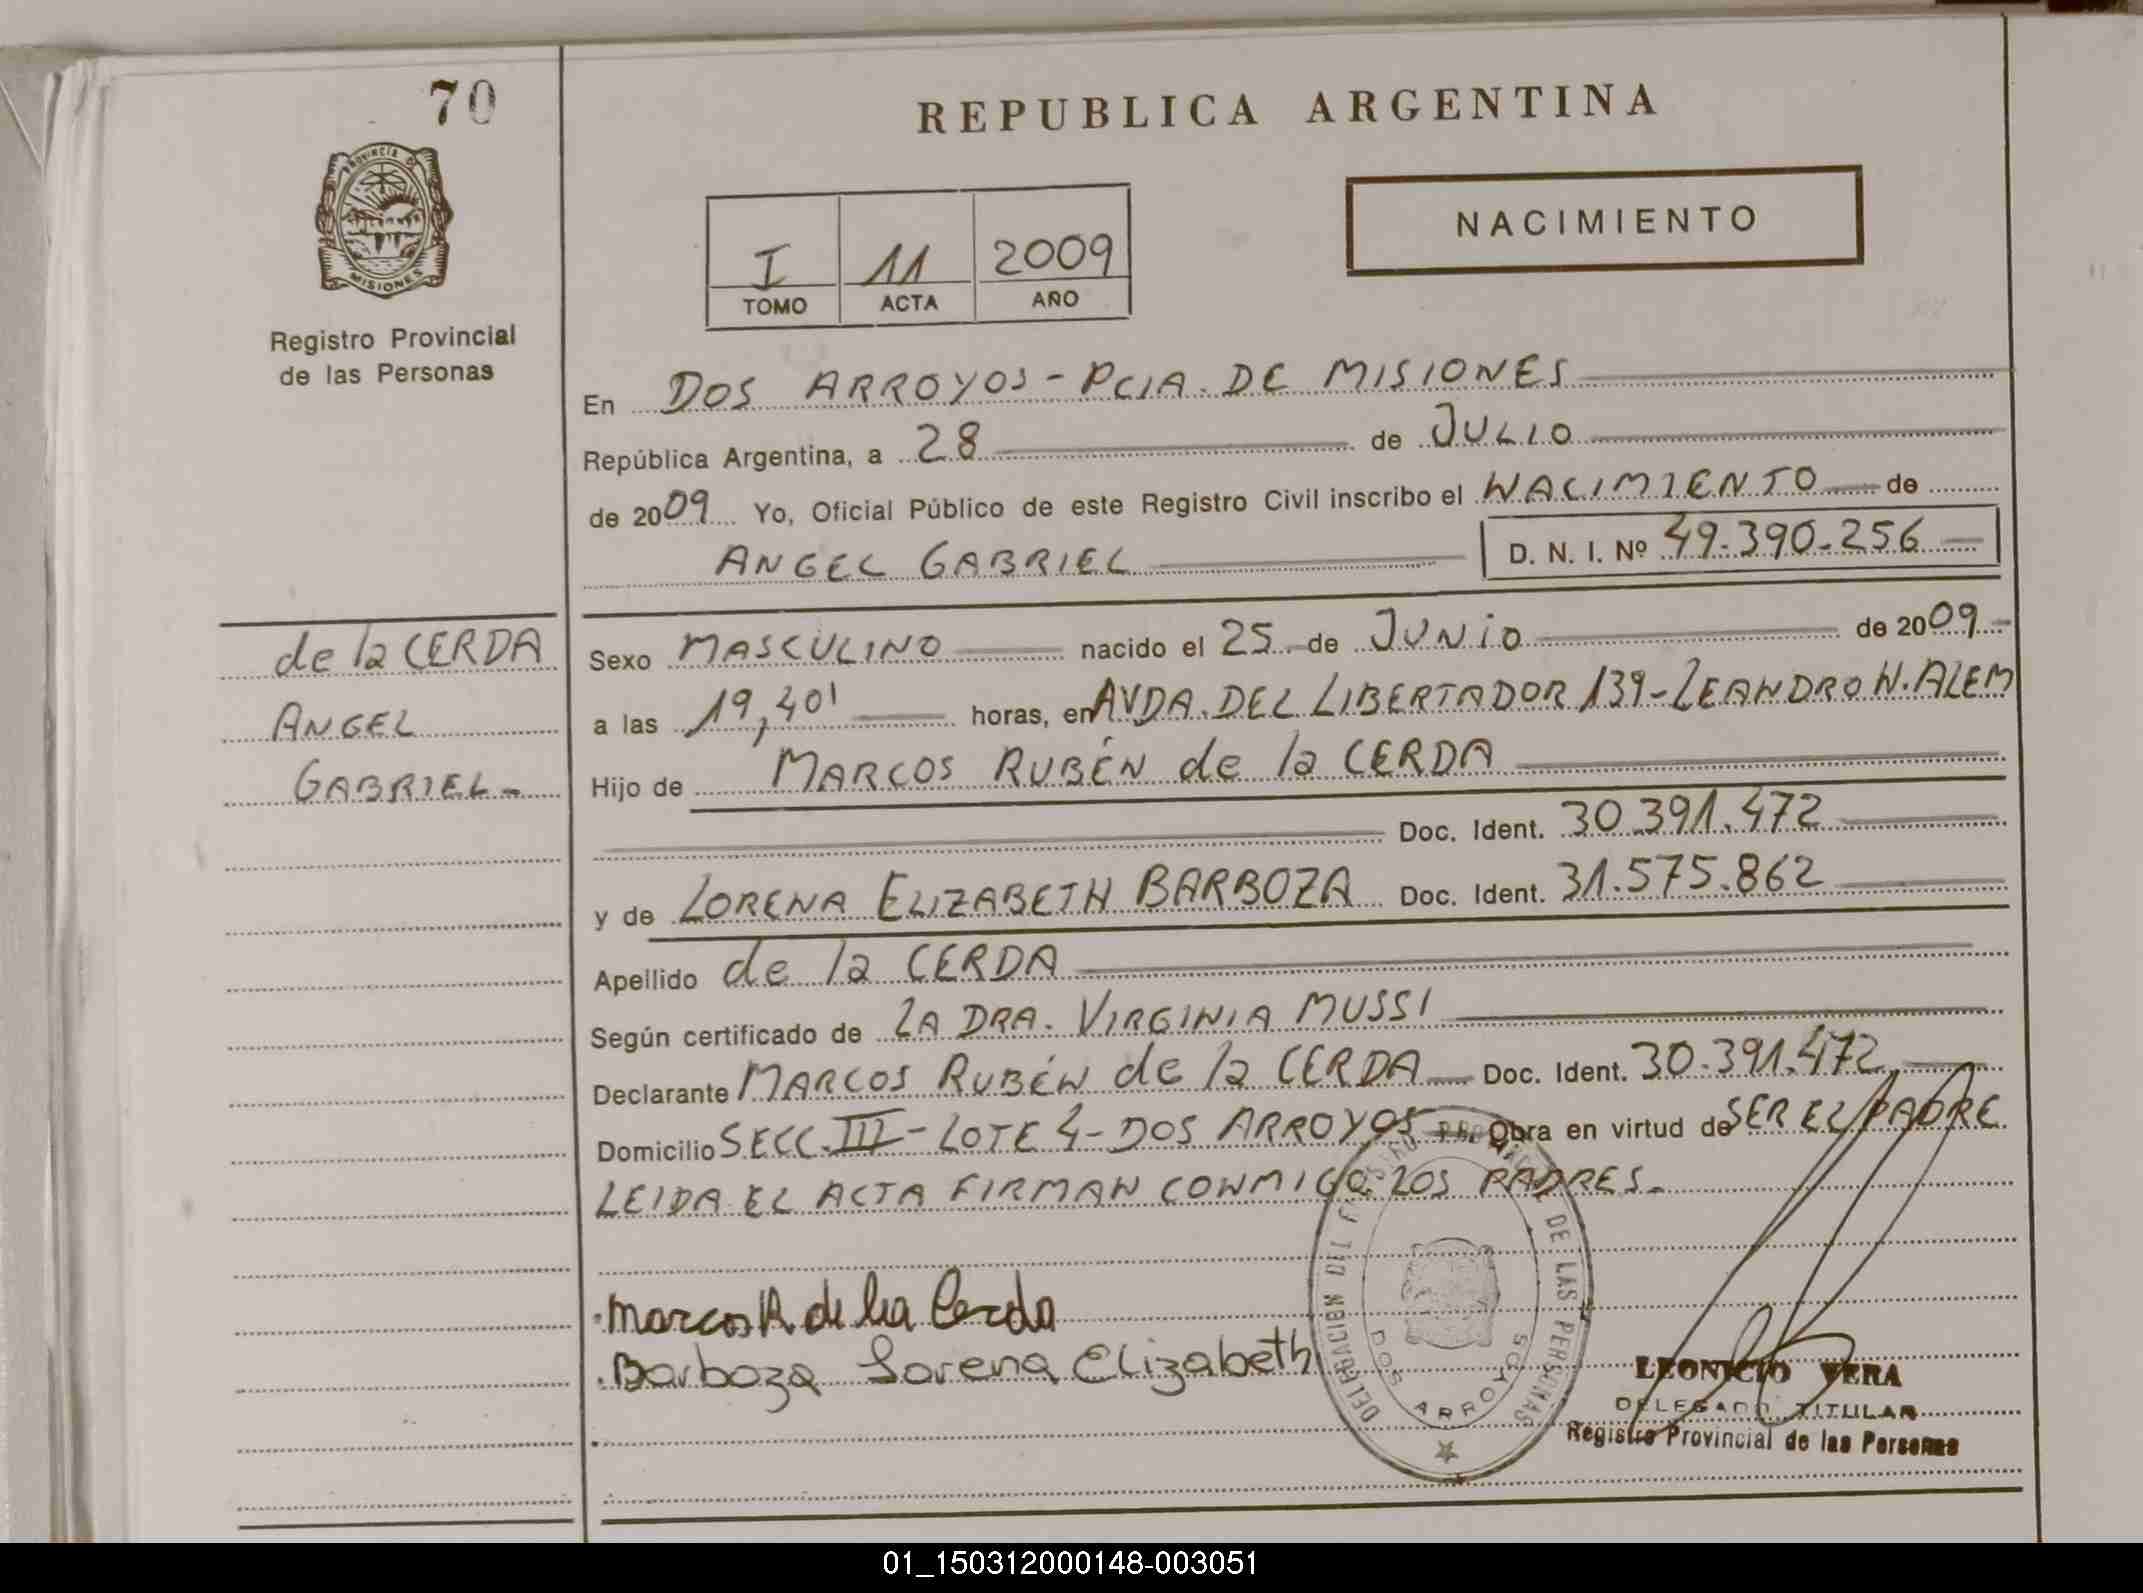 70
PROVINCIA DE
MISIONES
Registro Provincial
de las Personas
REPUBLICA ARGENTINA
I 11 2009
TOMO ACTA AÑO
NACIMIENTO
En DOS ARROYOS - PCIA. DE MISIONES
República Argentina, a 28 de JULIO
de 2009 Yo, Oficial Público de este Registro Civil inscribo el NACIMIENTO de
ANGEL GABRIEL D. N. I. Nº 49.390.256
de la CERDA
ANGEL
GABRIEL-
Sexo MASCULINO nacido el 25 de JUNIO de 2009
a las 19,40' horas, en AVDA. DEL LIBERTADOR 139-LEANDRO N. ALEM
Hijo de MARCOS RUBÉN de la CERDA
Doc. Ident. 30.391.472
y de LORENA ELIZABETH BARBOZA Doc. Ident. 31.575.862
Apellido de la CERDA
Según certificado de LA DRA. VIRGINIA MUSSI
Declarante MARCOS RUBÉN de la CERDA Doc. Ident. 30.391.472
Domicilio SECC. III - LOTE 4 - DOS ARROYOS Obra en virtud de SER EL PADRE
LEIDA EL ACTA FIRMAN CONMIGO LOS PADRES.
Marcos R de la Cerda
Barboza Lorena Elizabeth
DE LAS PERSONAS
DOS ARROYOS
LEONICIO VERA
DELEGADO TITULAR
Registro Provincial de las Personas
01_150312000148-003051